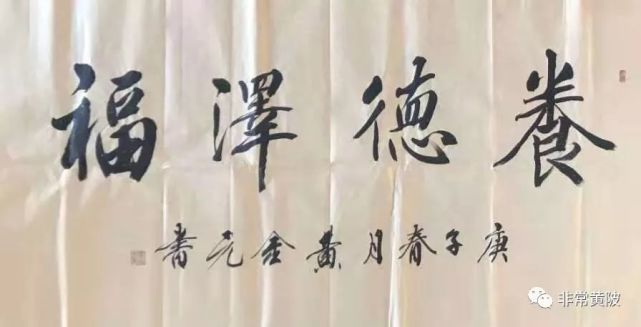 養德澤福
庚子春月黄金元書
非常黄陂